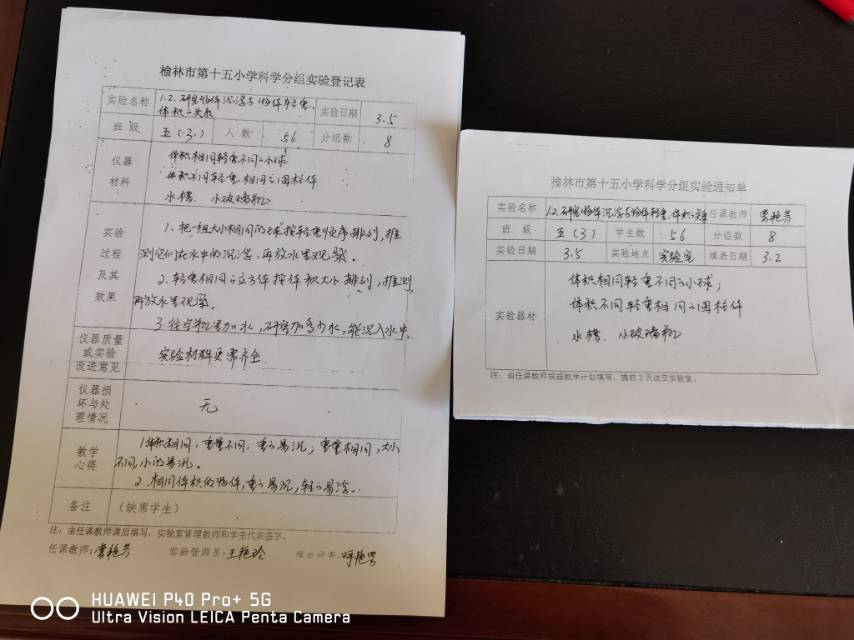 榆林市第十五小学科学分组实验登记表
实验名称 1.2.研究物体沉浮与物体轻重、体积之关系 实验日期 3.5
班 级 五(3.) 人 数 56 分组数 8
仪器材料 体积相同轻重不同之小球
体积不同轻重相同之圆柱体
水槽、小玻璃瓶
实验过程及其效果 1、把一组大小相同的球按轻重顺序排列,推
测它们在水中的沉浮,再放水里观察。
2.轻重相同之立方体按体积大小排列,推测,
再放水里观察。
3.往空瓶里加水,研究加多少水,能沉入水中。
仪器质量或实验改进意见 实验材料更需齐全
仪器损坏与处理情况 无
教学心得 1.体积相同,重量不同,重之易沉;重量相同,大小
不同,小的易沉。
2.相同体积的物体,重之易沉,轻之易浮.
备注 (缺席学生)
注:由任课教师课后填写,实验室管理教师和学生代表签字。
任课教师: 实验管理员:王艳玲 学生代表:
榆林市第十五小学科学分组实验通知单
实验名称 1.2.研究物体沉浮与物体轻重、体积之关系 任课教师
班 级 五(3) 学生数 56 分组数 8
实验日期 3.5 实验地点 实验室 填表日期 3.2
实验器材 体积相同轻重不同之小球;
体积不同轻重相同之圆柱体
水槽、小玻璃瓶
注:由任课教师根据教学计划填写,提前3天送交实验室。
HUAWEI P40 Pro+ 5G
Ultra Vision LEICA Penta Camera